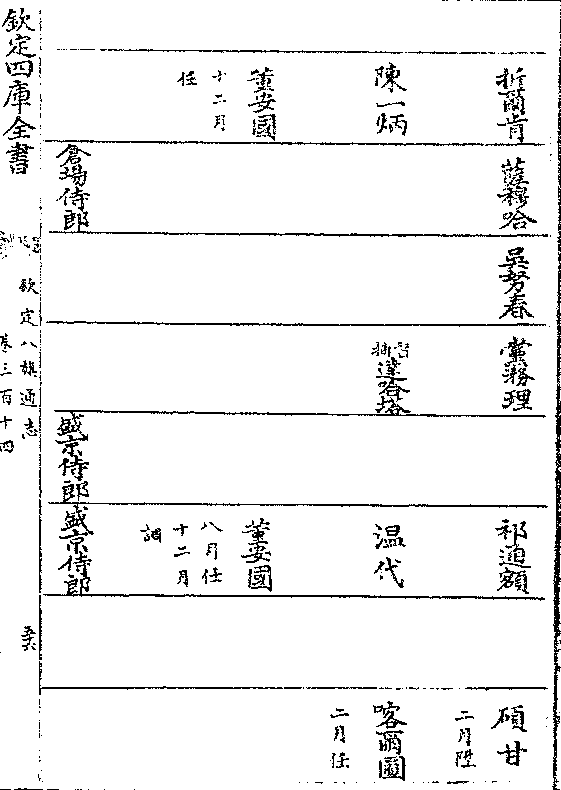 折爾肯
薩穆哈
吳努春
黨務理
碩甘
二月陞
陳一炳
達哈塔
温代
喀爾圖
二月任
董安國
十二月
任
董安國
八月任
十二月
調
倉場侍郎
盛京侍郎
盛京侍郎
欽定四庫全書
欽定八旗通志
卷三百十四
五六